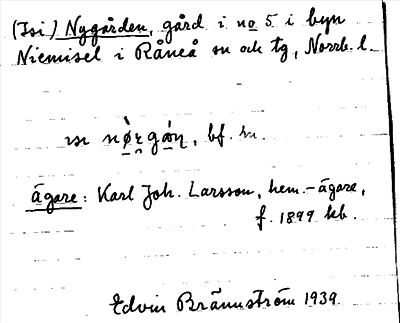 (Isi) Nygården, gård i no 5 i byn
Niemisel i Råneå sn och tg, Norrb. l.
bf.
ägare: Karl Joh. Larsson, hem.-ägare,
f. 1899 kb.
Edvin Brännström 1939.